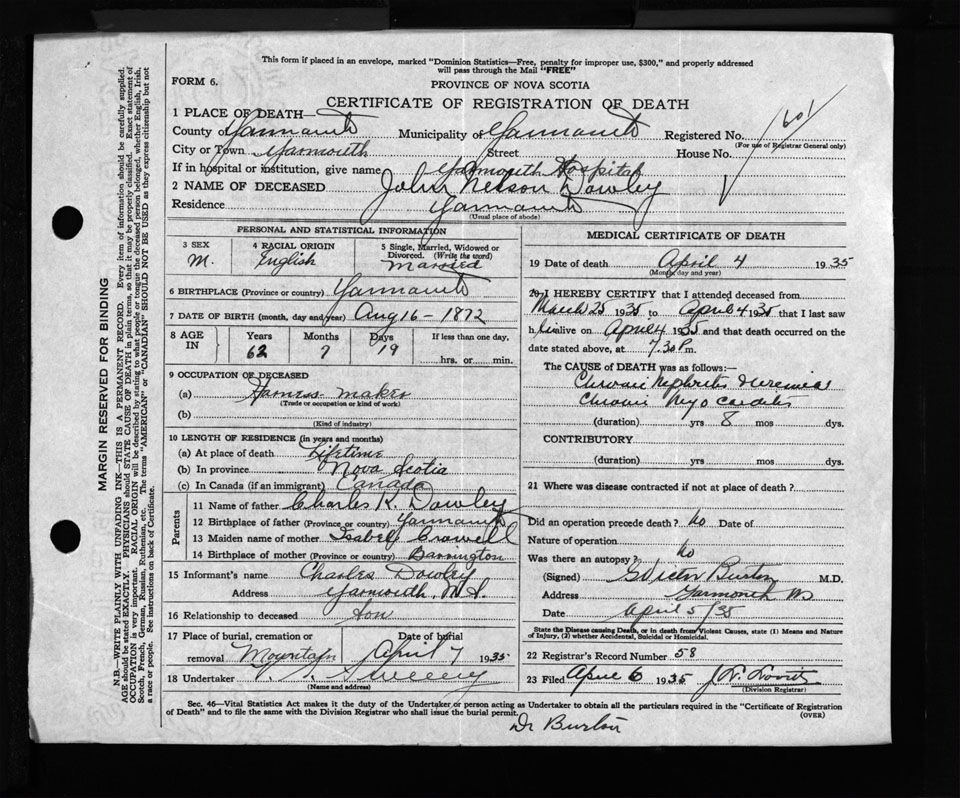 This form if placed in an envelope, marked "Dominion Statistics—Free, penalty for improper use, $300," and properly addressed
will pass through the Mail "FREE"
FORM 6.
PROVINCE OF NOVA SCOTIA
CERTIFICATE OF REGISTRATION OF DEATH
1 PLACE OF DEATH—
County of Yarmouth Municipality of Yarmouth Registered No. 1601
(For use of Registrar General only)
City or Town Yarmouth Street House No.
If in hospital or institution, give name Yarmouth Hospital
2 NAME OF DECEASED John Nelson Dowley
Residence Yarmouth
(Usual place of abode)
PERSONAL AND STATISTICAL INFORMATION
3 SEX 4 RACIAL ORIGIN 5 Single, Married, Widowed or
Divorced. (Write the word)
M. English Married
6 BIRTHPLACE (Province or country) Yarmouth
7 DATE OF BIRTH (month, day and year) Aug 16 - 1872
8 AGE IN Years Months Days If less than one day,
62 7 19 hrs. or min.
9 OCCUPATION OF DECEASED
(a) Harness maker
(Trade or occupation or kind of work)
(b)
(Kind of industry)
10 LENGTH OF RESIDENCE (in years and months)
(a) At place of death Lifetime
(b) In province Nova Scotia
(c) In Canada (if an immigrant) Canada
Parents
11 Name of father Charles K. Dowley
12 Birthplace of father (Province or country) Yarmouth
13 Maiden name of mother Isabel Crowell
14 Birthplace of mother (Province or country) Barrington
15 Informant's name Charles Dowley
Address Yarmouth, N.S.
16 Relationship to deceased Son
17 Place of burial, cremation or Date of burial
removal Mountain April 7 1935
18 Undertaker Sweeny
(Name and address)
MEDICAL CERTIFICATE OF DEATH
19 Date of death April 4 1935
(Month, day and year)
20 I HEREBY CERTIFY that I attended deceased from
March 25 1935 to April 4 1935 that I last saw
him alive on April 4 1935 and that death occurred on the
date stated above, at 7.30 P.m.
The CAUSE of DEATH was as follows:—
Chronic Nephritis Uremia
Chronic Myocarditis
(duration) yrs 8 mos dys.
CONTRIBUTORY
(duration) yrs. mos. dys.
21 Where was disease contracted if not at place of death?
Did an operation precede death? No Date of
Nature of operation
Was there an autopsy? No
(Signed) G Victor Burton M.D.
Address Yarmouth NS
Date April 5/35
State the Disease causing Death, or in death from Violent Causes, state (1) Means and Nature
of Injury, (2) whether Accidental, Suicidal or Homicidal.
22 Registrar's Record Number 58
23 Filed April 6 1935
(Division Registrar)
Sec. 46—Vital Statistics Act makes it the duty of the Undertaker or person acting as Undertaker to obtain all the particulars required in the "Certificate of Registration
of Death" and to file the same with the Division Registrar who shall issue the burial permit. (OVER)
Dr Burton
MARGIN RESERVED FOR BINDING
N.B. WRITE PLAINLY WITH UNFADING INK—THIS IS A PERMANENT RECORD. Every item of information should be carefully supplied.
AGE should be stated EXACTLY. PHYSICIANS should STATE CAUSE OF DEATH in plain terms, so that it may be properly classified. Exact statement of
OCCUPATION is very important. RACIAL ORIGIN will be described by stating to what people or tongue the deceased person belonged, whether English, Irish,
Scotch, French, German, Russian, Ruthenian, etc. The terms "AMERICAN" or "CANADIAN" SHOULD NOT BE USED as they express citizenship but not
a race or people. See instructions on back of Certificate.